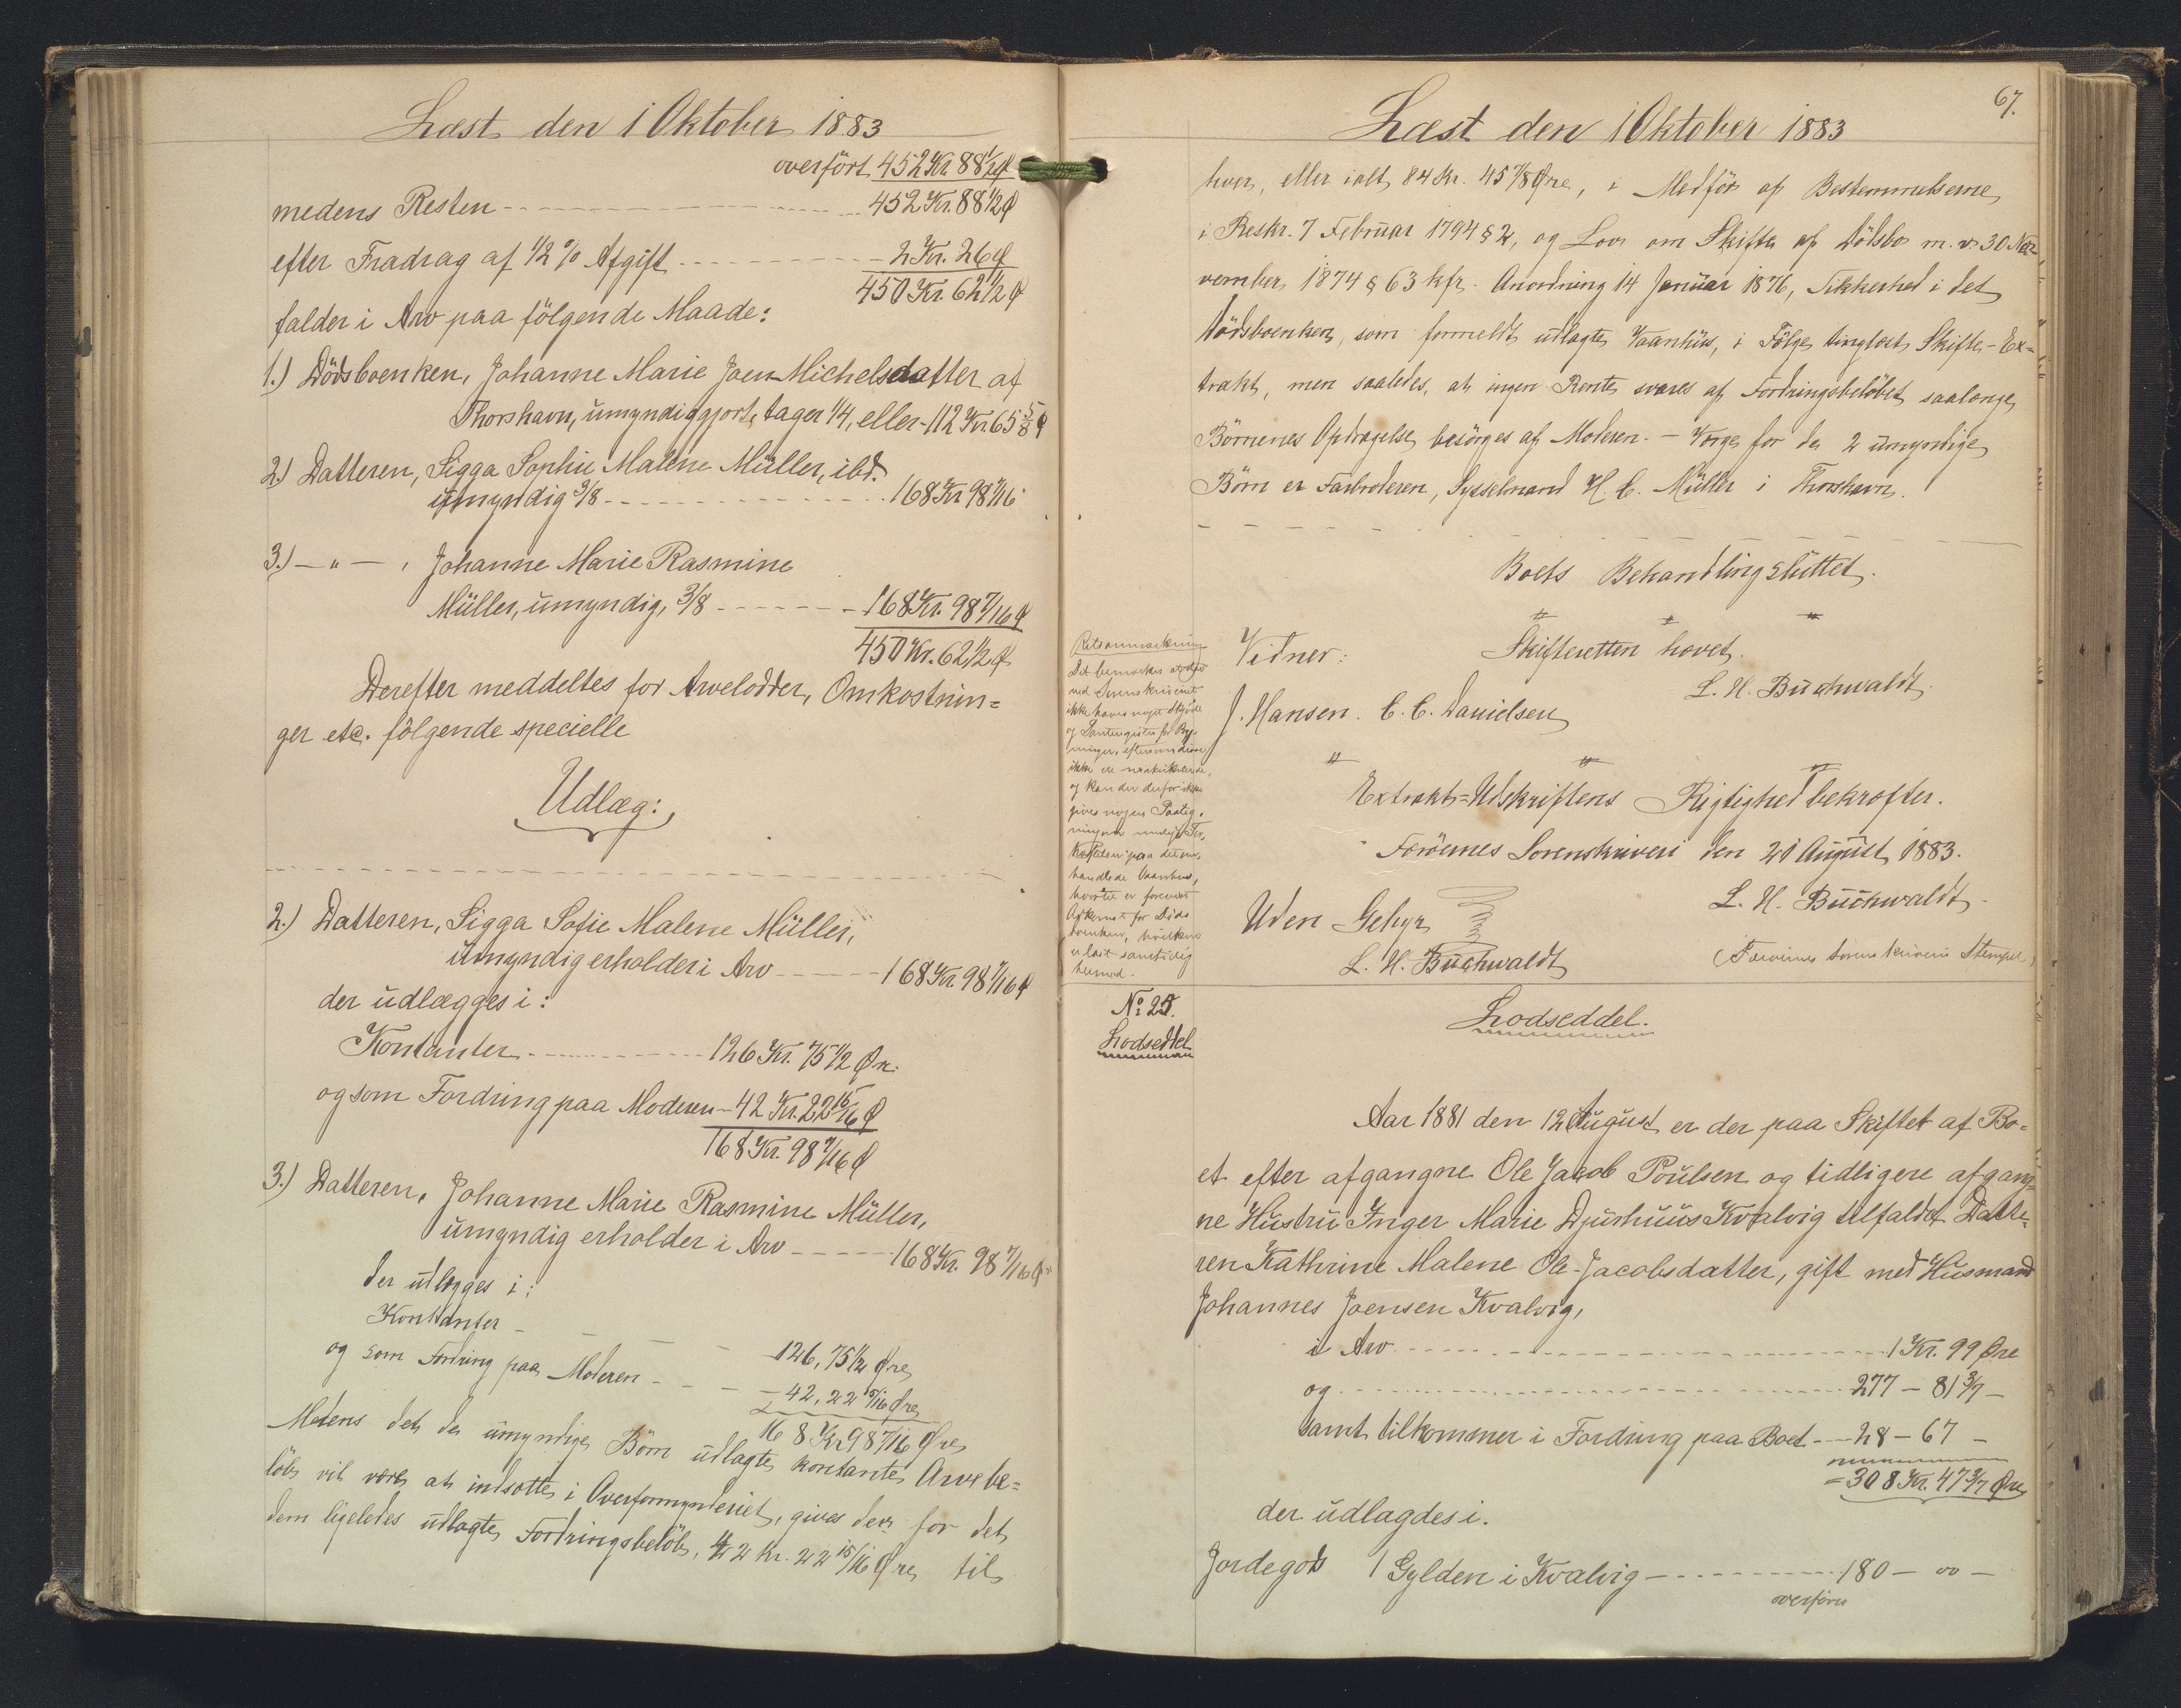 Læst den 1 Oktober 1883
overført 452 Kr 88 1/2 Ø
medens Resten - - - 452 Kr. 88 1/2 Ø
efter Fradrag af 1/2 % Afgift - - - 2 Kr. 26 Ø
450 Kr. 62 1/2 Ø
falder i Arv paa følgende Maade:
1.) Dödsboenken, Johanne Marie Joen-Michelsdatter af
Thorshavn, umyndiggjort, tager 1/4, eller - 112 Kr 65 5/8 Ø
2.) Datteren, Sigga Sophie Malene Müller, ibd.
umyndig 3/8 - - - 168 Kr 98 7/16
3.) — " — , Johanne Marie Rasmine
Müller, umyndig, 3/8 - - - 168 Kr. 98 7/16 Ø
450 Kr. 62 1/2 Ø
Derefter meddeltes for Arvelodder, Omkostnin=
ger etc. følgende specielle
Udlæg:
2.) Datteren, Sigga Sofie Malene Müller,
umyndig erholder i Arv - - - 168 Kr. 98 7/16 Ø
der udlægges i:
Kontanter - - - 126 Kr. 75 1/2 Øre
og som Fordring paa Moderen - 42 Kr. 22 15/16 Ø
168 Kr. 98 7/16 Ø
3.) Datteren, Johanne Marie Rasmine Müller,
umyndig erholder i Arv - - - 168 Kr. 98 7/16 Ø
der udlægges i:
Kontanter - - - 126, 75 1/2 Øre
og som Fordring paa Moderen - - - 42, 22 15/16 Øre
168 Kr 98 7/16 Øre
Medens det de umyndige Börn udlagte kontante Arvebe=
löb vil være at indsætte i Overformynderiet, gives der for det
dem ligeledes udlagte Fordringsbelöb, 42 Kr. 22 15/16 Øre til
67.
Læst den 1 Oktober 1883
hver, eller ialt 84 Kr. 45 7/8 Øre, i Medför af Bestemmelserne
i Reskr. 7 Februar 1794 § 2, og Lov om Skifte af Dödsbo m. v. 30 No=
vember 1874 § 63 kfr. Anordning 14 Januar 1876, Sikkerhed i det
Dödsboenken, som formeldt udlagte Vaanhus, i Fölge tinglæst Skifte-Ex=
trakt, men saaledes, at ingen Rente svares af Fordringsbelöbet saalænge
Börnenes Opdragelse besörges af Moderen. — Værge for de 2 umyndige
Börn er Farbroderen, Sysselmand H. C. Müller i Thorshavn.
Boets Behandling sluttet.
Skifteretten hævet.
L. H. Buchwaldt.
Vidner:
J. Hansen. C. C. Danielsen
Extrakt-Udskriftens Rigtighed bekræfter.
Færöernes Sorenskriveri den 21 August 1883.
L. H. Buchwaldt.
Uden Gebyr
L. H. Buchwaldt
(Færöernes Sorenskriveris Stempel)
Retsanmærkning
Det bemærkes at der
ved Sorenskriveriet
ikke haves noget Skjöde
og Panteregister for Byg=
ninger, eftersom disse
ikke ere matrikulerede,
og kan der derfor ikke
gives nogen Paateg=
ning om
paa det om=
handlede Vaanhus,
hvortil er forevist
Adkomst for Döds=
boenken, hvilken
er læst samtidig
hermed.
No 25.
Lodseddel
Lodseddel.
Aar 1881 den 12 August er der paa Skiftet af Bo=
et efter afgangne Ole Jacob Poulsen og tidligere afgang=
ne Hustru Inger Marie Djurhuus Kvalvig tilfaldet Datte=
ren Kathrine Malene Ole-Jacobsdatter, gift med Husmand
Johannes Joensen Kvalvig,
i Arv - - - 1 Kr. 99 Øre
og - - - 277 — 81 3/7 —
samt tilkommer i Fordring paa Boet - - 28 — 67 —
= 308 Kr. 47 3/7 Øre
der udlagdes i.
Jordegods 1 Gylden i Kvalvig - - - 180 — 00 —
overføres